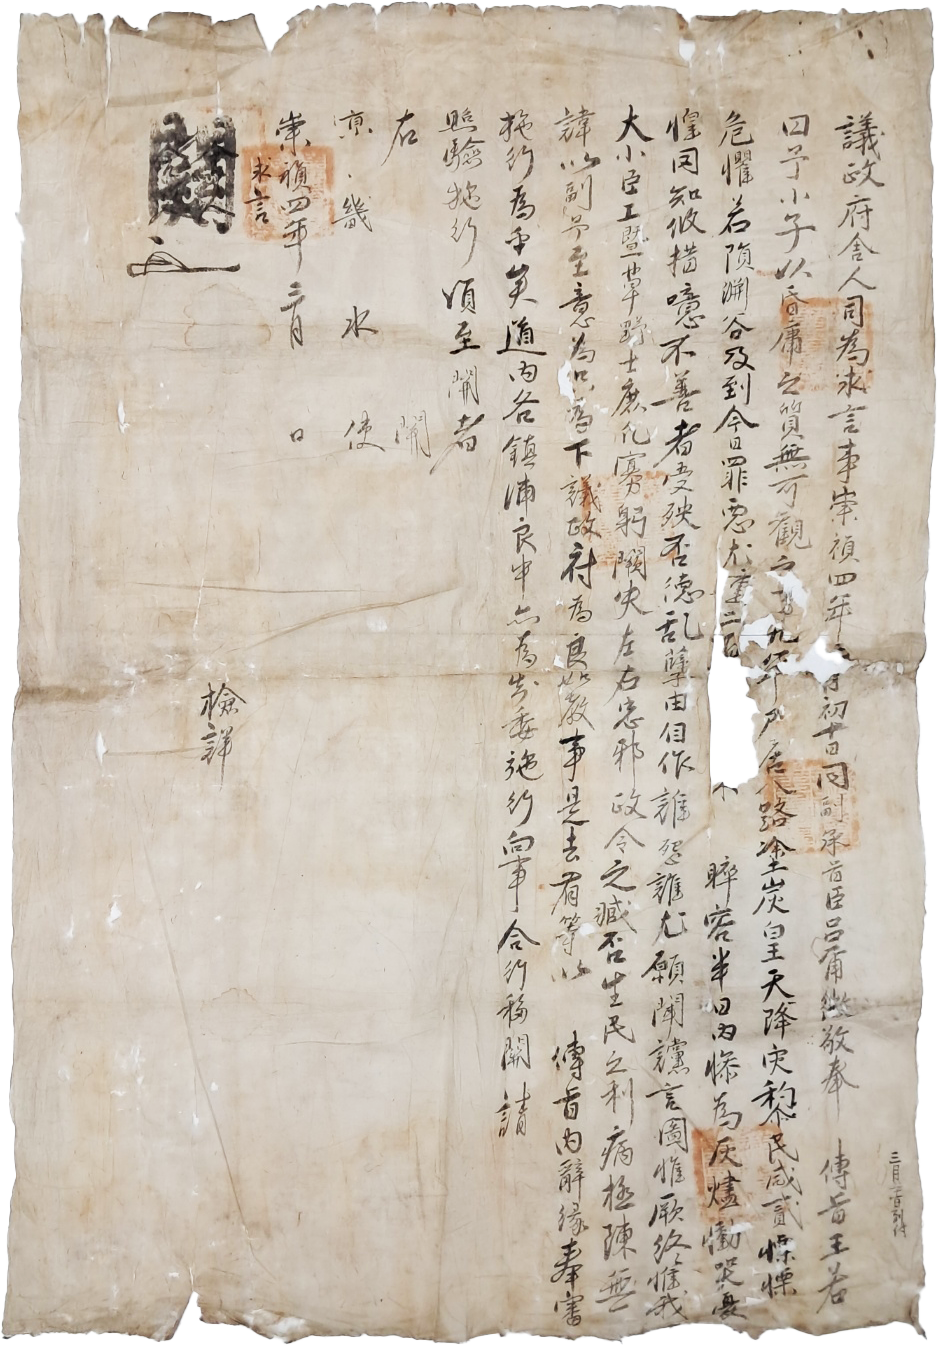 議政府舍人司爲求言事崇禎四年 月初十日同副承旨臣呂 徵敬奉 傳旨王若
曰予小子以昏庸之質無可觀之 九年 居八路塗炭皇天降灾黎民咸貳慄慄
危懼若隕淵谷及到今日罪惡尤重二百 不 晬容半日內慘爲灰燼慟哭憂
惶罔知攸措噫不善者受殃否德亂孼由自作誰怨誰尤願聞讜言圖惟厥終惟我
大小臣工曁草野士庶凡寡躬闕失左右忠邪政令之臧否生民之利病極陳無
諱以副予至意爲只爲下議政府爲良如敎事是去有等以 傳旨內辭緣奉審
施行爲乎矣道內各鎭浦良中 爲 委施行向事合行移關請
照驗施行須至關者
右 關
京畿水使
崇禎四年二月 日
求言
檢詳
三月 到付